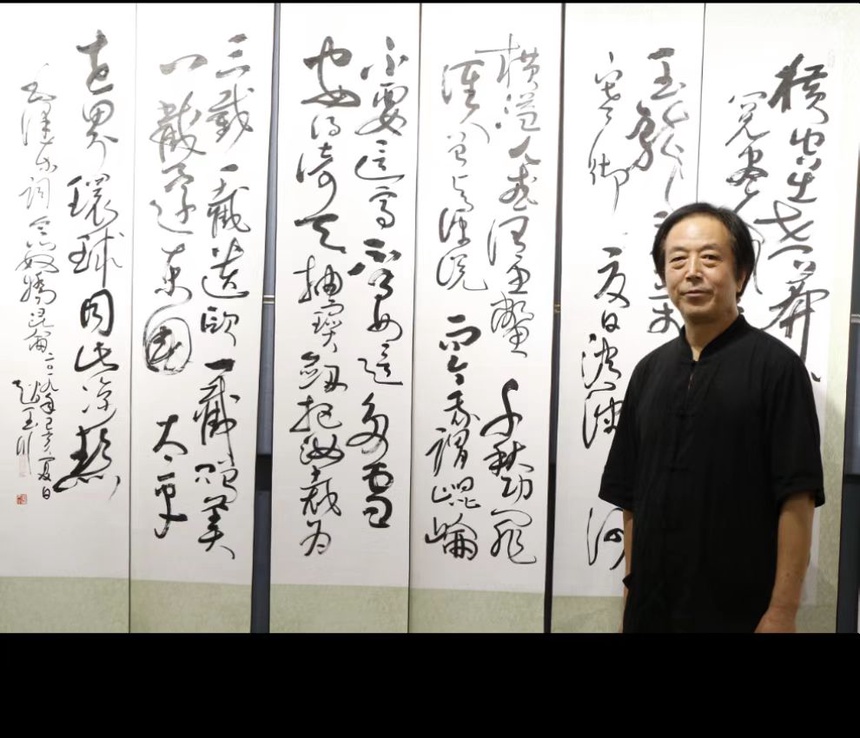 横空出世莽
阅尽人
玉龙三百
寒彻夏日波涛河
横溢人或为鱼鳖千秋功罪
谁人曾与评说而今我谓崐崘
不要这高不要这多雪
安得倚天抽寶劔把汝裁为
三截一截遗欧一截赠美
一截还东國太平
世界環球同此凉热
毛泽东词念奴娇昆仑二〇一九年己亥夏日
赵玉川